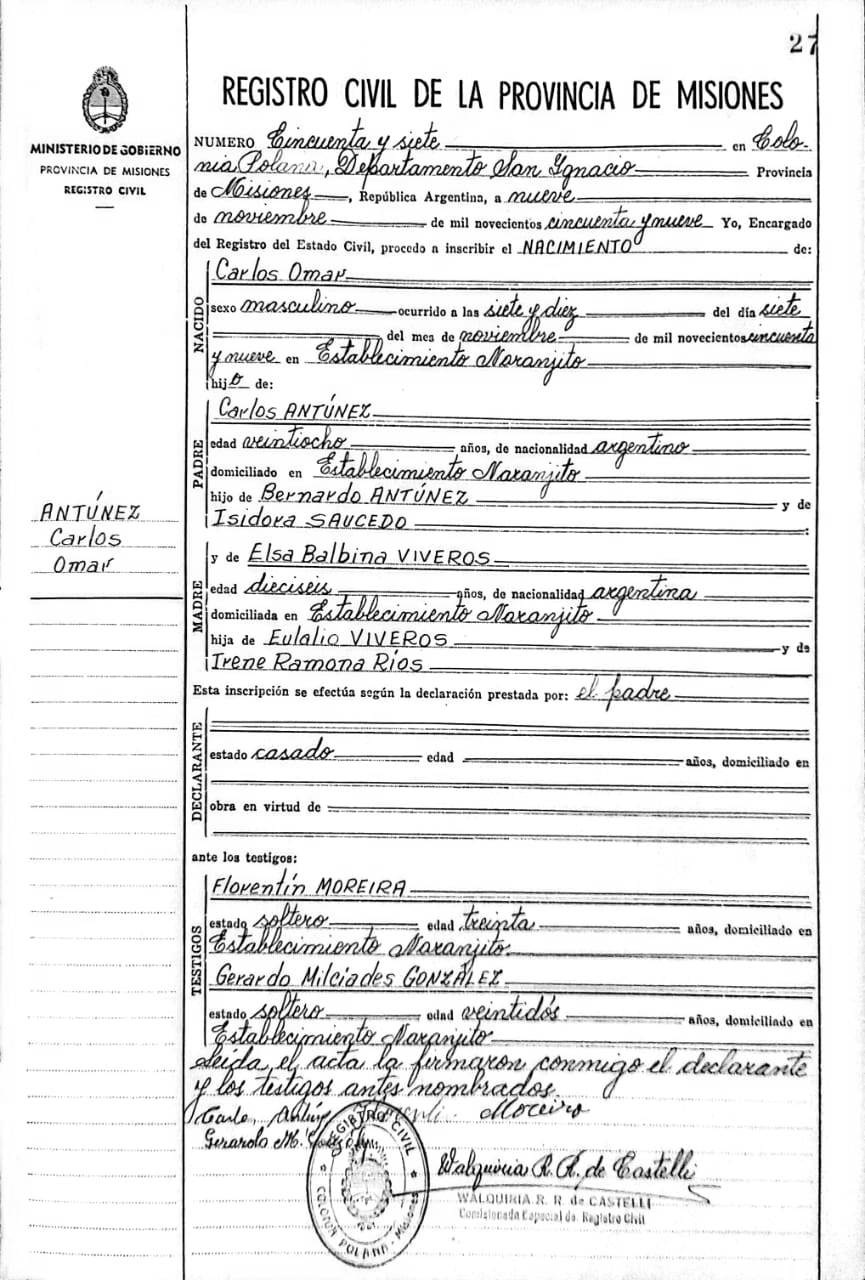 27
REGISTRO CIVIL DE LA PROVINCIA DE MISIONES
MINISTERIO DE GOBIERNO
PROVINCIA DE MISIONES
REGISTRO CIVIL
NUMERO Cincuenta y siete en Colo-
nia Polana, Departamento San Ignacio Provincia
de Misiones, República Argentina, a nueve
de noviembre de mil novecientos cincuenta y nueve Yo, Encargado
del Registro del Estado Civil, procedo a inscribir el NACIMIENTO de:
NACIDO
Carlos Omar
sexo masculino ocurrido a las siete y diez del día siete
del mes de noviembre de mil novecientos cincuenta
y nueve en Establecimiento Naranjito
hijo de:
PADRE
Carlos ANTÚNEZ
edad veintiocho años, de nacionalidad argentino
domiciliado en Establecimiento Naranjito
hijo de Bernardo ANTÚNEZ y de
Isidora SAUCEDO :
ANTÚNEZ
Carlos
Omar
MADRE
y de Elsa Balbina VIVEROS
edad dieciseis años, de nacionalidad argentina
domiciliada en Establecimiento Naranjito
hija de Eulalio VIVEROS y de
Irene Ramona Ríos
Esta inscripción se efectúa según la declaración prestada por: el padre
DECLARANTE
estado casado edad años, domiciliado en
obra en virtud de
ante los testigos:
TESTIGOS
Florentín MOREIRA
estado soltero edad treinta años, domiciliado en
Establecimiento Naranjito
Gerardo Milcíades GONZÁLEZ
estado soltero edad veintidós años, domiciliado en
Establecimiento Naranjito
Leída el acta la firmaron conmigo el declarante
y los testigos antes nombrados.
Moreiro
Gerardo M.
REGISTRO CIVIL
COLONIA POLANA - Misiones
Walquiria R. R. de Castelli
WALQUIRIA R. R. de CASTELLI
Comisionada Especial de Registro Civil